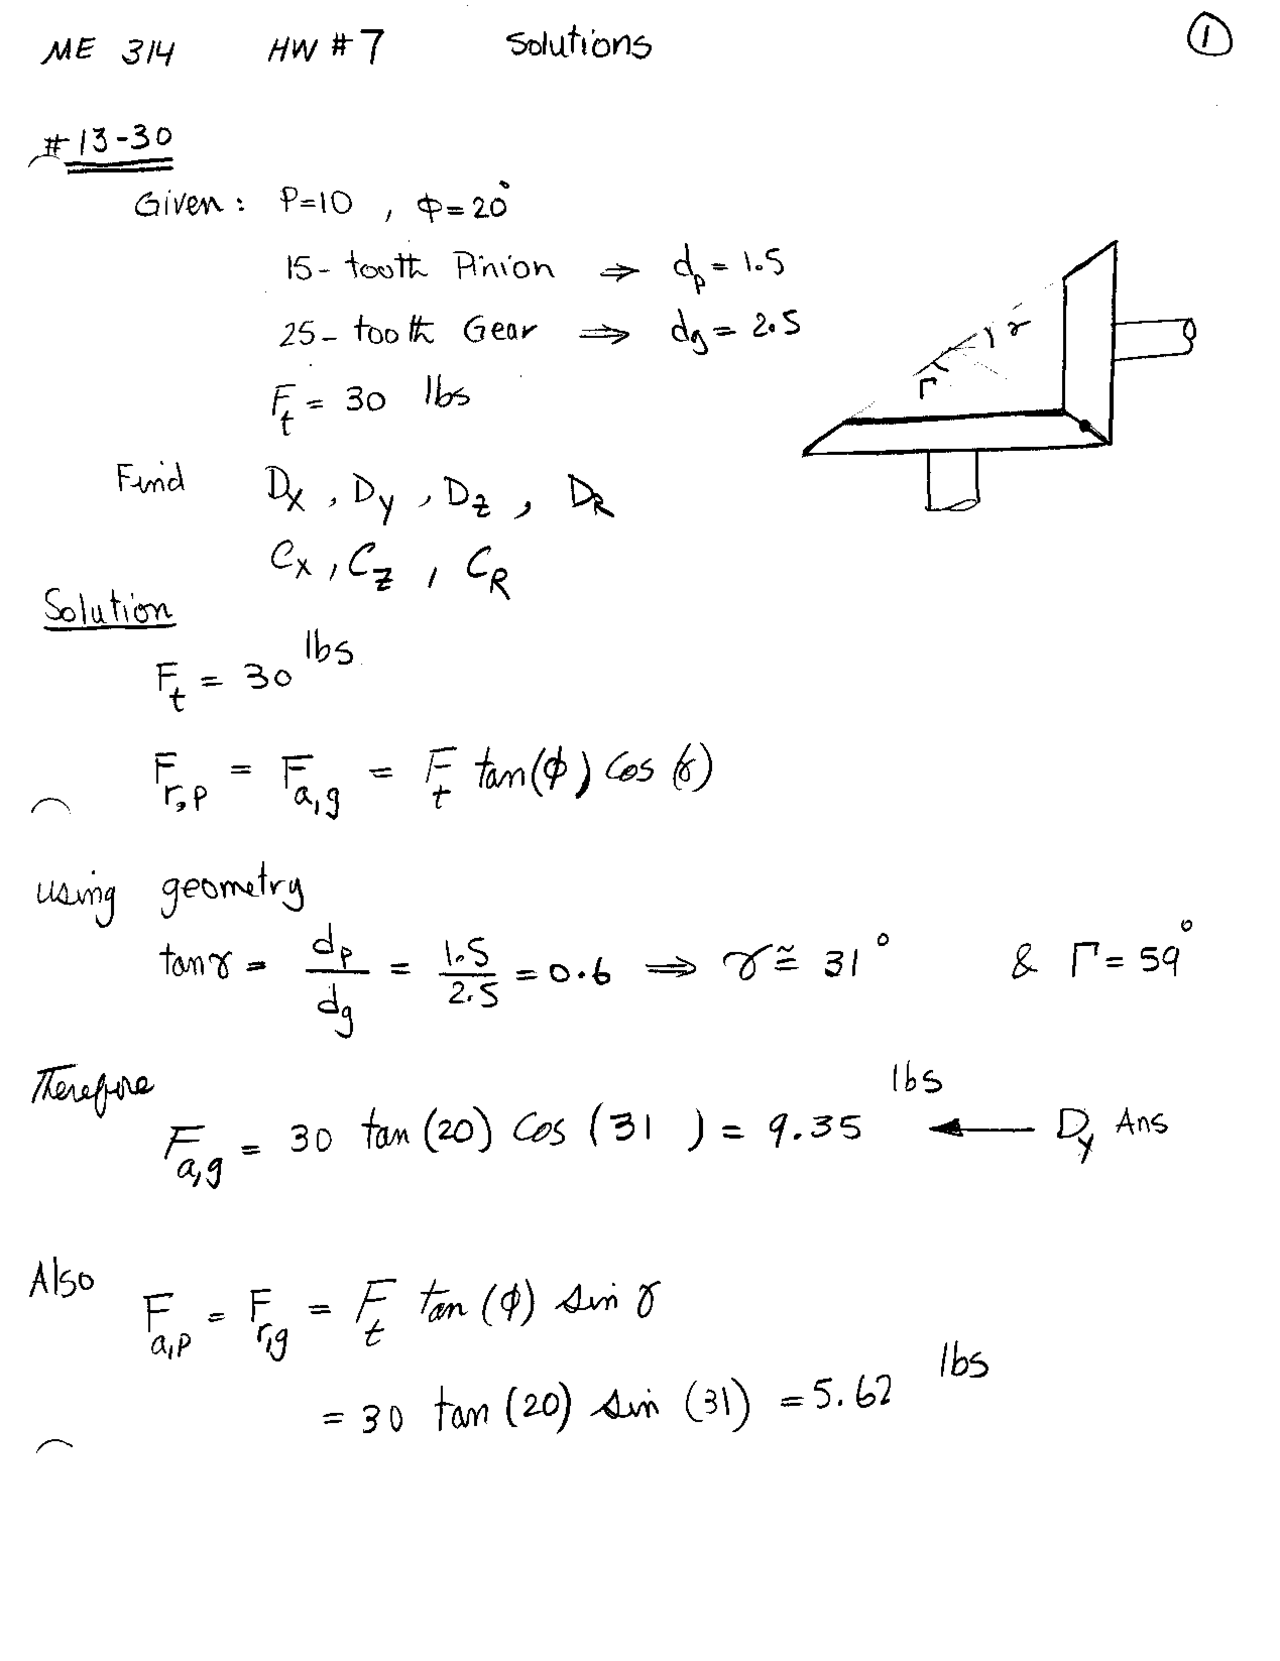 ME 314 HW # 7 Solutions 1
# 13-30
Given: P=10 , Φ=20°
15- tooth Pinion ⇒ dp = 1.5
25- tooth Gear ⇒ dg = 2.5
Ft = 30 lbs
γ
Γ
Find Dx , Dy , Dz , DR
Cx , Cz , CR
Solution
Ft = 30 lbs
Fr,p = Fa,g = Ft tan(Φ) cos (γ)
using geometry
tanγ = dp/dg = 1.5/2.5 = 0.6 ⇒ γ ≅ 31° & Γ = 59°
Therefore
Fa,g = 30 tan (20) cos (31 ) = 9.35 lbs ← Dy Ans
Also
Fa,p = Fr,g = Ft tan (Φ) sin γ
= 30 tan (20) sin (31) = 5.62 lbs